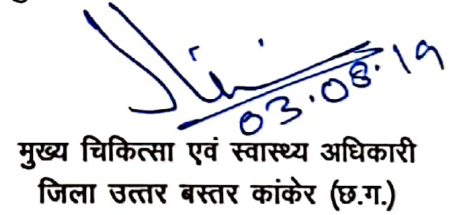 03.08.19
मुख्य चिकित्सा एवं स्वास्थ्य अधिकारी
जिला उत्तर बस्तर कांकेर (छ.ग.)